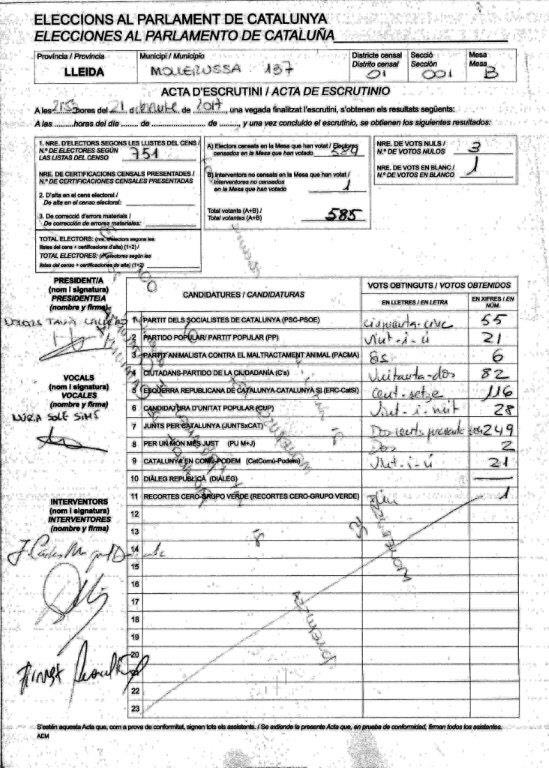 ELECCIONS AL PARLAMENT DE CATALUNYA
ELECCIONES AL PARLAMENTO DE CATALUÑA
Província / Provincia
LLEIDA
Municipi / Municipio
MOLLERUSSA 137
Districte censal
Distrito censal
01
Secció
Sección
001
Mesa
Mesa
B
ACTA D'ESCRUTINI / ACTA DE ESCRUTINIO
A les hores del 21 de de 2017, una vegada finalitzat l'escrutini, s'obtenen els resultats següents:
A las horas del día de de , y una vez concluido el escrutinio, se obtienen los siguientes resultados:
1. NRE. D'ELECTORS SEGONS LES LLISTES DEL CENS /
N.º DE ELECTORES SEGÚN
LAS LISTAS DEL CENSO
751
NRE. DE CERTIFICACIONS CENSALS PRESENTADES /
N.º DE CERTIFICACIONES CENSALES PRESENTADAS
2. D'alta en el cens electoral /
De alta en el censo electoral:
3. De correcció d'errors materials /
De corrección de errores materiales:
TOTAL ELECTORS: (nre. d'electors segons les
llistes del cens + certificacions d'alta) (1+2) /
TOTAL ELECTORES: (electores según las
listas del censo + certificaciones de alta) (1+2)
A) Electors censats en la Mesa que han votat / Electores
censados en la Mesa que han votado
584
B) Interventors no censats en la Mesa que han votat /
Interventores no censados
en la Mesa que han votado
1
Total votants (A+B) /
Total votantes (A+B)
585
NRE. DE VOTS NULS /
N.º DE VOTOS NULOS
3
NRE. DE VOTS EN BLANC /
N.º DE VOTOS EN BLANCO
1
PRESIDENT/A
(nom i signatura)
PRESIDENTE/A
(nombre y firma)
VOCALS
(nom i signatura)
VOCALES
(nombre y firma)
NÚRIA SOLÉ
INTERVENTORS
(nom i signatura)
INTERVENTORES
(nombre y firma)
CANDIDATURES / CANDIDATURAS
VOTS OBTINGUTS / VOTOS OBTENIDOS
EN LLETRES / EN LETRA
EN XIFRES / EN NÚM.
1 PARTIT DELS SOCIALISTES DE CATALUNYA (PSC-PSOE) cinquanta-cinc 55
2 PARTIDO POPULAR/ PARTIT POPULAR (PP) Vint-i-ú 21
3 PARTIT ANIMALISTA CONTRA EL MALTRACTAMENT ANIMAL (PACMA) Sis 6
4 CIUTADANS-PARTIDO DE LA CIUDADANÍA (C's) Vuitanta-dos 82
5 ESQUERRA REPUBLICANA DE CATALUNYA-CATALUNYA SÍ (ERC-CatSí) Cent-setze 116
6 CANDIDATURA D'UNITAT POPULAR (CUP) Vint-i-vuit 28
7 JUNTS PER CATALUNYA (JUNTSxCAT) Dos-cents 249
8 PER UN MÓN MÉS JUST (PU M+J) Dos 2
9 CATALUNYA EN COMÚ-PODEM (CatComú-Podem) Vint-i-ú 21
10 DIÀLEG REPUBLICÀ (DIÀLEG)
11 RECORTES CERO-GRUPO VERDE (RECORTES CERO-GRUPO VERDE) 1
12
13
14
15
16
17
18
19
20
21
22
23
S'estén aquesta Acta que, com a prova de conformitat, signen tots els assistents. / Se extiende la presente Acta que, en prueba de conformidad, firman todos los asistentes.